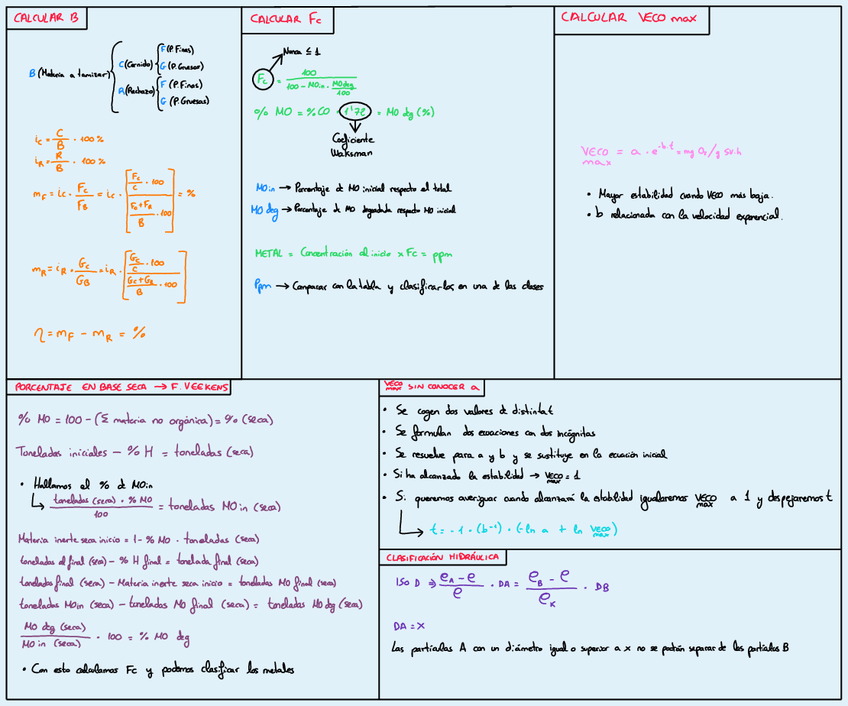 CALCULAR B
B (Materia a tamizar)
C (Cernido)
F (P. Finas)
G (P. Gruesas)
R (Rechazo)
F (P. Finas)
G (P. Gruesas)
ic = C/B · 100 %
iR = R/B · 100 %
mF = ic · FC/FB = ic · [(FC/C · 100) / ((FC+FR)/B · 100)] = %
mR = iR · GC/GB = iR · [(GC/C · 100) / ((GC+GR)/B · 100)]
η = mF - mR = %
CALCULAR Fc
Nunca ≤ 1
Fc = 100 / (100 - MOin · MOdeg/100)
% MO = % CO · 1'72 = MO dg (%)
Coeficiente
Waksman
MOin → Porcentaje d MO inicial respecto al total
MO deg → Porcentaje d MO degradada respecto MO inicial
METAL = Concentración al inicio × Fc = ppm
Ppm → Comparar con la tabla y clasificarlos en una de las clases
CALCULAR VECO max
VECO max = a · e^-b·t = mg O2/g SV.h
• Mayor estabilidad cuando VECO más baja.
• b relacionada con la velocidad exponencial.
PORCENTAJE EN BASE SECA → F. VEEKENS
% MO = 100 - (Σ materia no orgánica) = % (seca)
Toneladas iniciales - % H = toneladas (seca)
• Hallamos el % d MOin
↳ toneladas (seca) · % MO / 100 = toneladas MOin (seca)
Materia inerte seca inicio = 1 - % MO · toneladas (seca)
toneladas al final (sea) - % H final = tonelada final (seca)
toneladas final (seca) - Materia inerte seca inicio = toneladas MO final (seca)
toneladas MOin (seca) - toneladas MO final (seca) = toneladas MO dg (seca)
MO dg (seca) / MO in (seca) · 100 = % MO deg
• Con esto calculamos Fc y podemos clasificar los metales
VECO max SIN CONOCER a
• Se cogen dos valores de distinta t
• Se formulan dos ecuaciones con dos incógnitas
• Se resuelve para a y b y se sustituye en la ecuación inicial
• Si ha alcanzado la estabilidad → VECO max = 1
• Si queremos averiguar cuando alcanzará la estabilidad igualaremos VECO max a 1 y despejaremos t
↳ t = -1 · (b⁻¹) · (-ln a + ln VECO max)
CLASIFICACIÓN HIDRÁULICA
ISO D ⇒ (ρA - ρ)/ρ · DA = (ρB - ρ)/ρK · DB
DA = X
Las partículas A con un diámetro igual o superior a x no se podrán separar de las partículas B